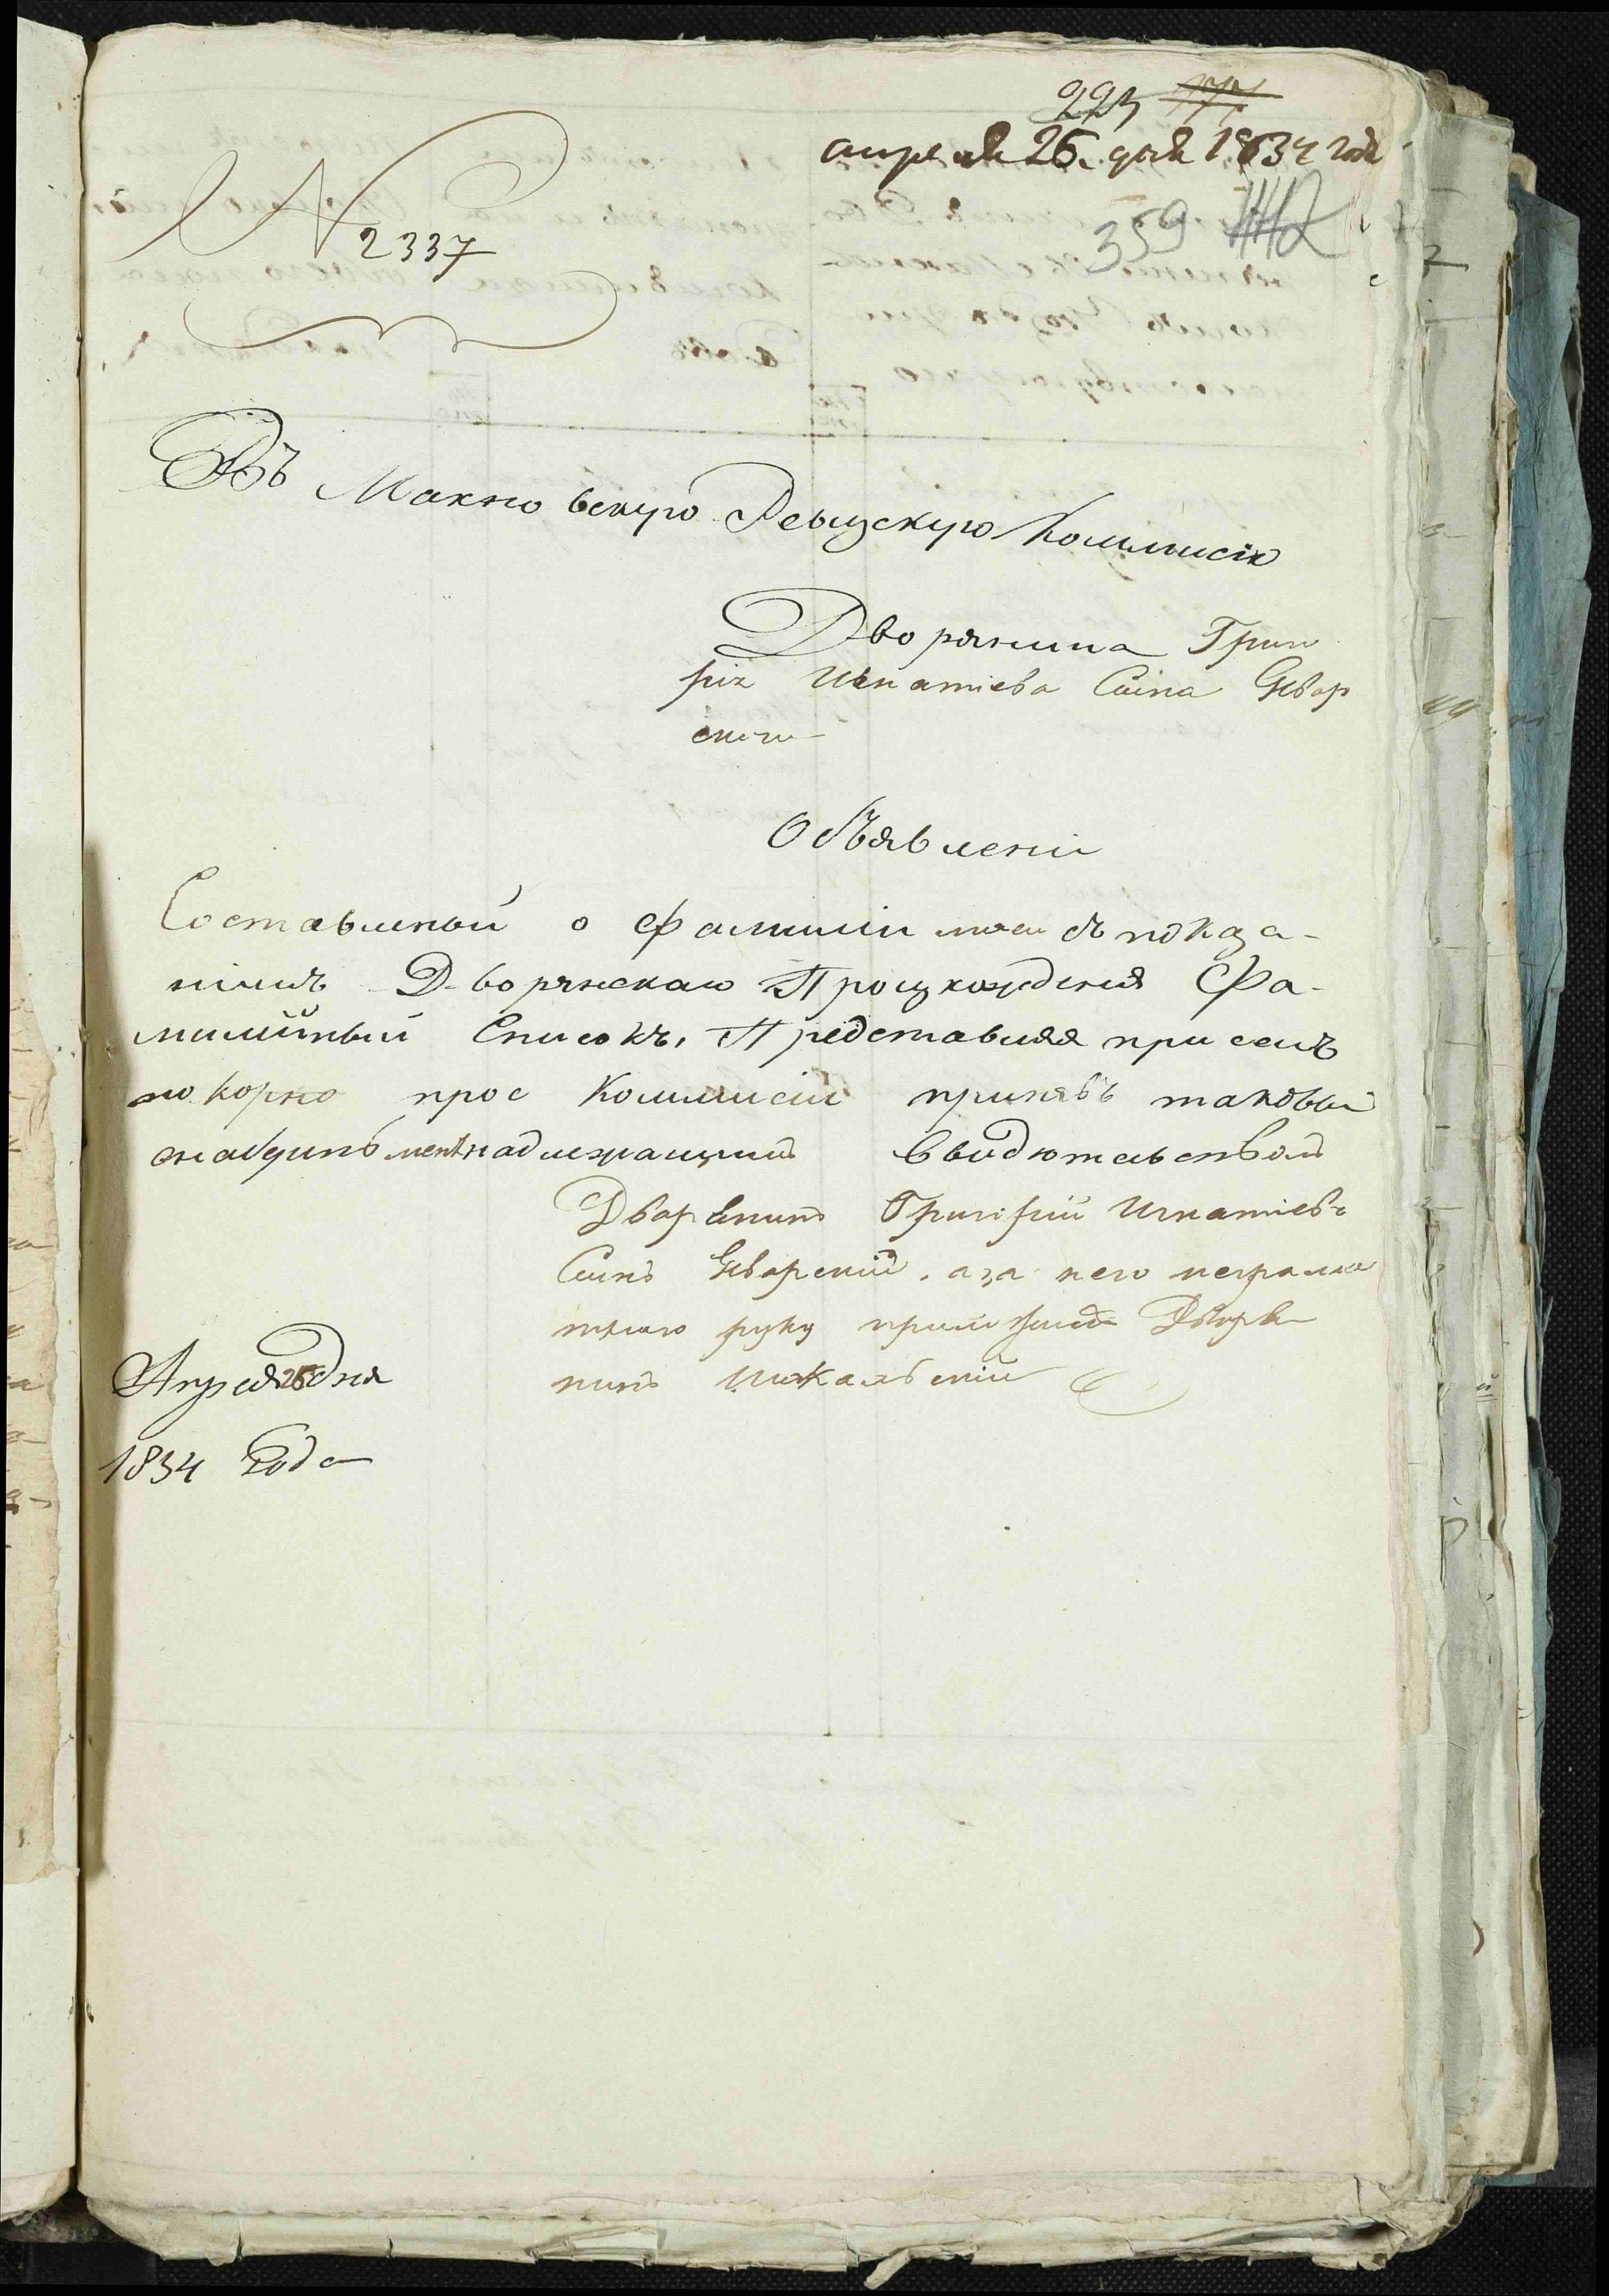 223
апреля 26. дня 1834 года
359
N 2337
Въ Махновскую Ревизскую Коммисію
Дворянина Григо
рія Игнатіева Сина Явор
ского
Объявленіи
Составленый о Фамиліи моей съ показа-
ніемъ Дворянскаго Происхожденія Фа-
милійный Списокъ, Представляя при семъ
покорно прос Коммисіи принявъ таковый
снабдить менѣ надлежащимъ Свидютельствомъ
Дворянинъ Григорій Игнатіевъ
Синъ Яворскій, а за него неграмо
тного руку приложилъ Дворя
нинъ
Апреля 26 Дня
1834 Года